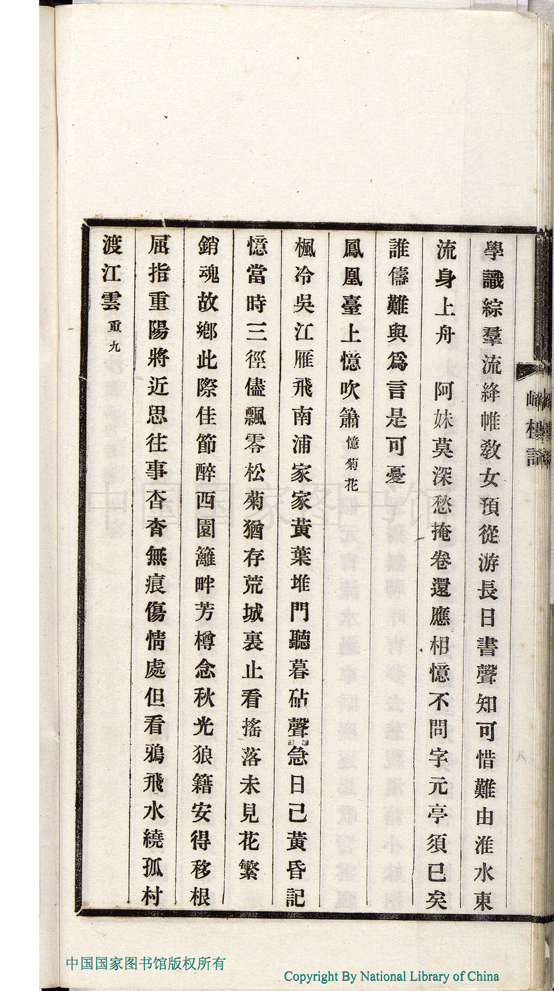 學識綜羣流絳帷教女預從游長日書聲知可惜難由淮水東
流身上舟　阿妹莫深愁掩卷還應相憶不問字元亭須已矣
誰儔難與爲言是可憂
鳳凰臺上憶吹簫 憶菊花
楓冷吳江雁飛南浦家家黃葉堆門聽暮砧聲急日已黃昏記
憶當時三徑儘飄零松菊猶存荒城裏止看搖落未見花繁
銷魂故鄉此際佳節醉西園籬畔芳樽念秋光狼籍安得移根
屈指重陽將近思往事杳杳無痕傷情處但看鴉飛水繞孤村
渡江雲 重九
中国国家图书馆
中国国家图书馆版权所有
Copyright By National Library of China